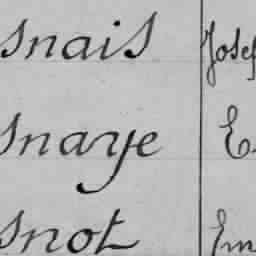 snais Josef
snaye E
snot Em